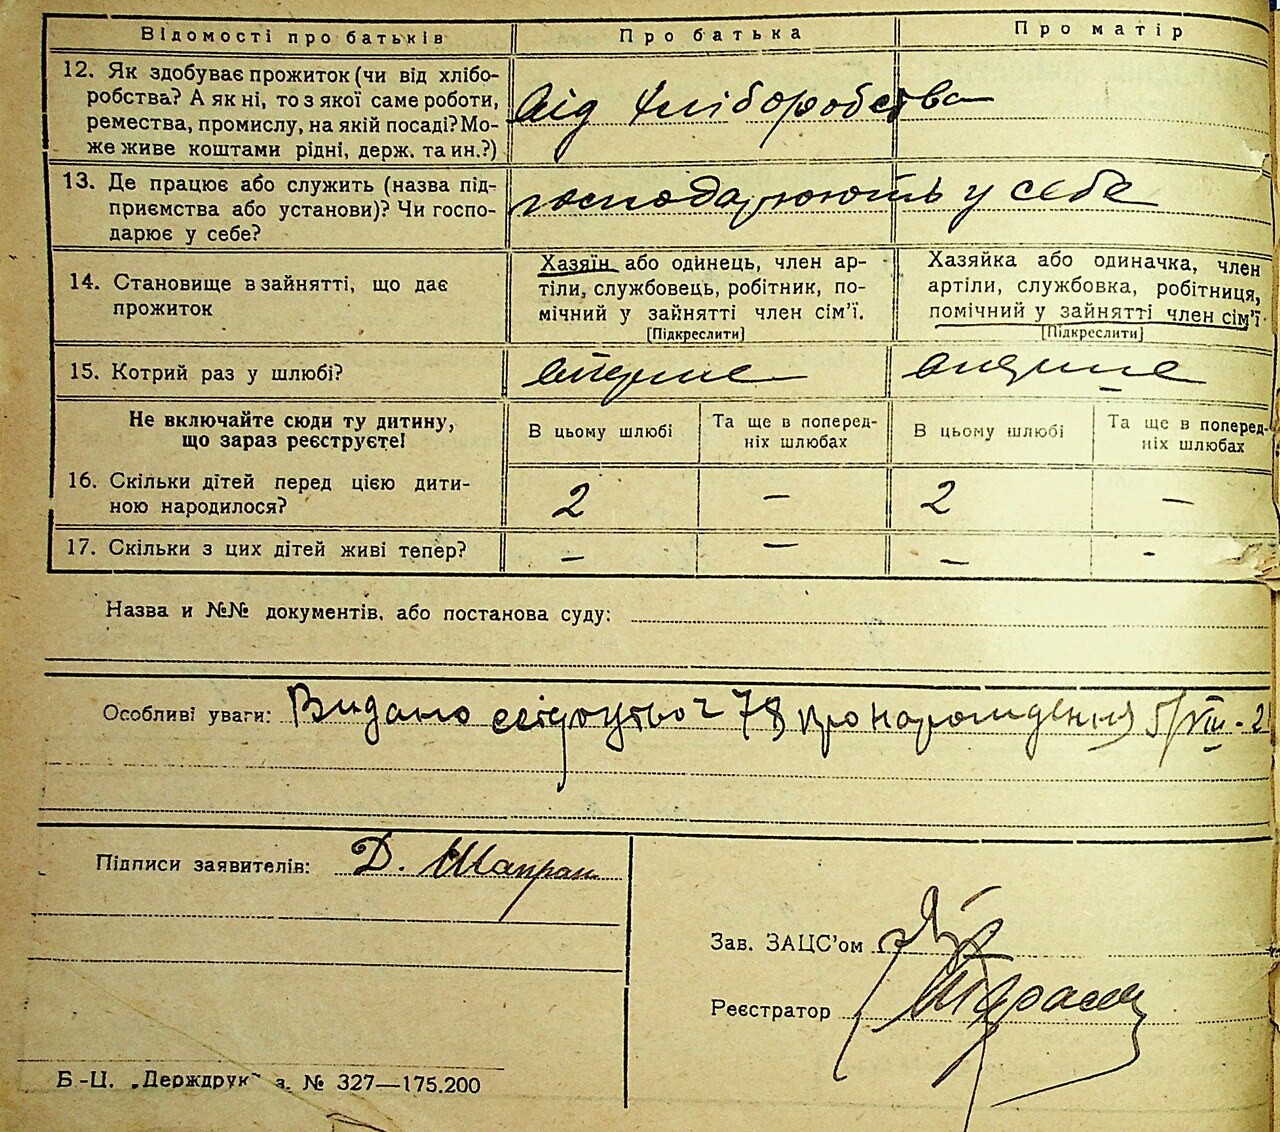 Відомості про батьків Про батька Про матір
12. Як здобуває прожиток (чи від хлібо-
робства? А як ні, то з якої саме роботи,
ремества, промислу, на якій посаді? Мо-
же живе коштами рідні, держ. та ин.?)
від хліборобства
13. Де працює або служить (назва під-
приємства або установи)? Чи госпо-
дарює у себе?
господарюють у себе
14. Становище в зайнятті, що дає
прожиток
Хазяїн або одинець, член ар-
тіли, службовець, робітник, по-
мічний у зайнятті член сім’ї.
[Підкреслити]
Хазяйка або одиначка, член
артіли, службовка, робітниця,
помічний у зайнятті член сім’ї.
[Підкреслити]
15. Котрий раз у шлюбі? вперше вперше
Не включайте сюди ту дитину,
що зараз реєструєте!
В цьому шлюбі
Та ще в поперед-
ніх шлюбах
В цьому шлюбі
Та ще в поперед-
ніх шлюбах
16. Скільки дітей перед цією дити-
ною народилося?
2 — 2 —
17. Скільки з цих дітей живі тепер? — — — -
Назва и №№ документів, або постанова суду:
Особливі уваги: Видано 78 про народження 5/VIII - 2
Підписи заявителів: Д. Шапран
Зав. ЗАЦС’ом
Реєстратор
Б-Ц. „Держдрук“ з. № 327—175.200